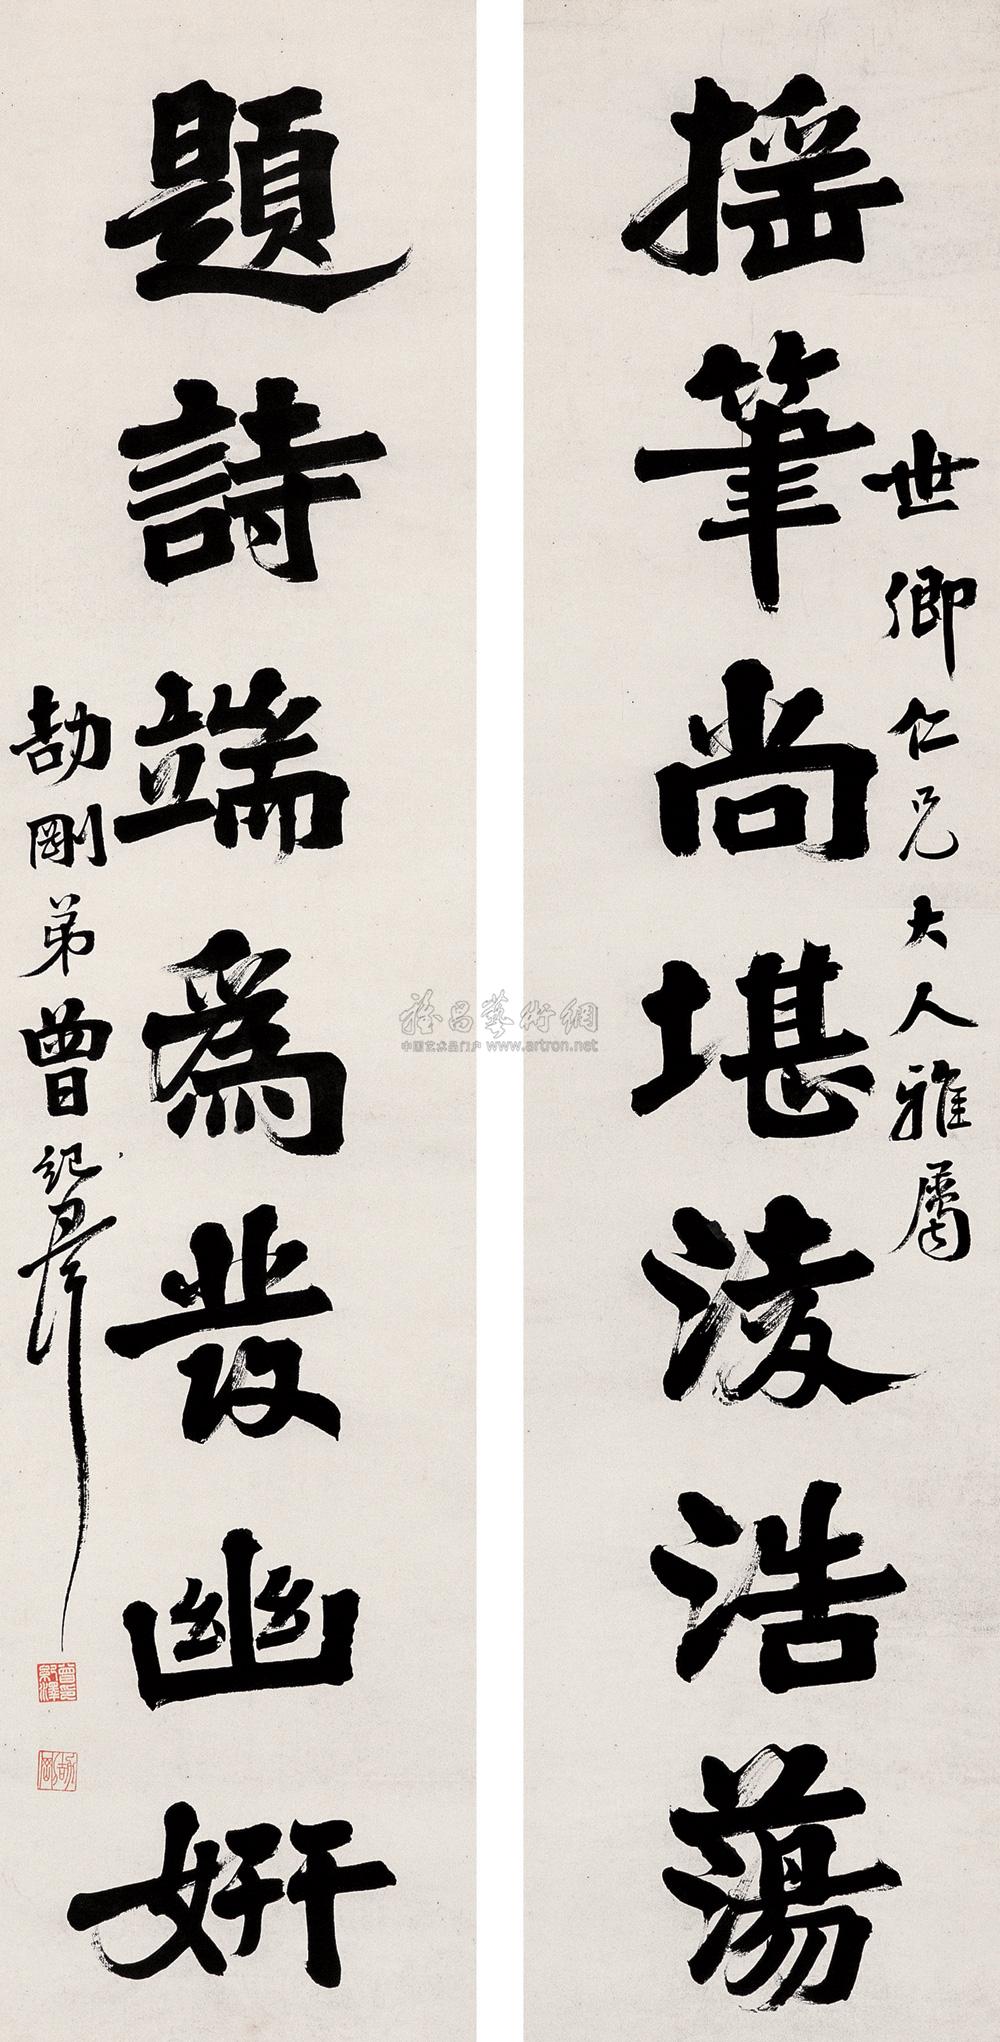 搖筆尚堪淩浩蕩
世卿仁兄大人雅屬
題詩端為發幽妍
劼剛弟曾紀澤
曾紀澤印
劼剛
雅昌藝術網
中国艺术品门户 www.artron.net